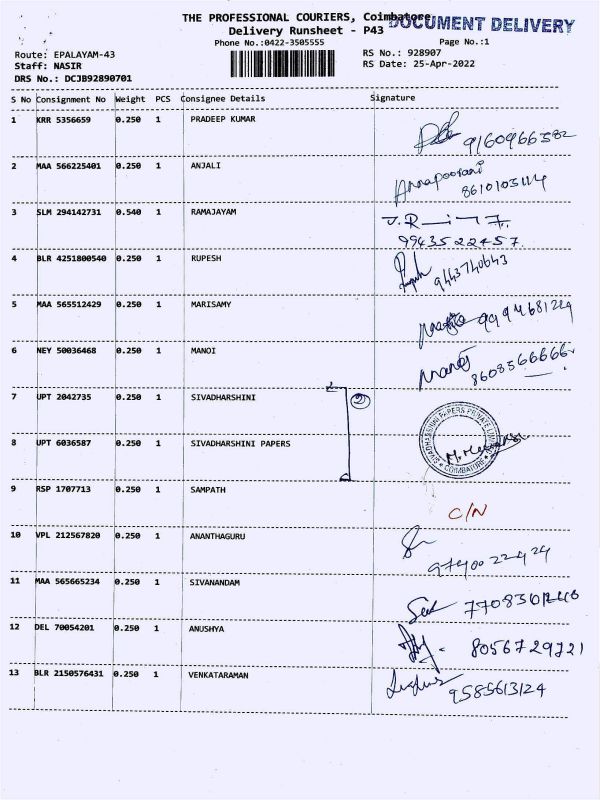 THE PROFESSIONAL COURIERS, Coimbatore
DOCUMENT DELIVERY
Delivery Runsheet - P43
Phone No.:0422-3505555 Page No.:1
Route: EPALAYAM-43 RS No.: 928907
Staff: NASIR RS Date: 25-Apr-2022
DRS No.: DCJB92890701
S No Consignment No Weight PCS Consignee Details Signature
1 KRR 5356659 0.250 1 PRADEEP KUMAR
9160966382
2 MAA 566225401 0.250 1 ANJALI
Annapoorani
8610103114
3 SLM 294142731 0.540 1 RAMAJAYAM
9943522457
4 BLR 4251800540 0.250 1 RUPESH
9443740643
5 MAA 565512429 0.250 1 MARISAMY
6 NEY 50036468 0.250 1 MANOI
Manoj
8608566666
7 UPT 2042735 0.250 1 SIVADHARSHINI
2
8 UPT 6036587 0.250 1 SIVADHARSHINI PAPERS
SIVADHASSHINI PAPERS PRIVATE LIMITED
COIMBATORE
9 RSP 1707713 0.250 1 SAMPATH
C/N
10 VPL 212567820 0.250 1 ANANTHAGURU
9740022424
11 MAA 565665234 0.250 1 SIVANANDAM
12 DEL 70054201 0.250 1 ANUSHYA
8056729721
13 BLR 2150576431 0.250 1 VENKATARAMAN
9585613124